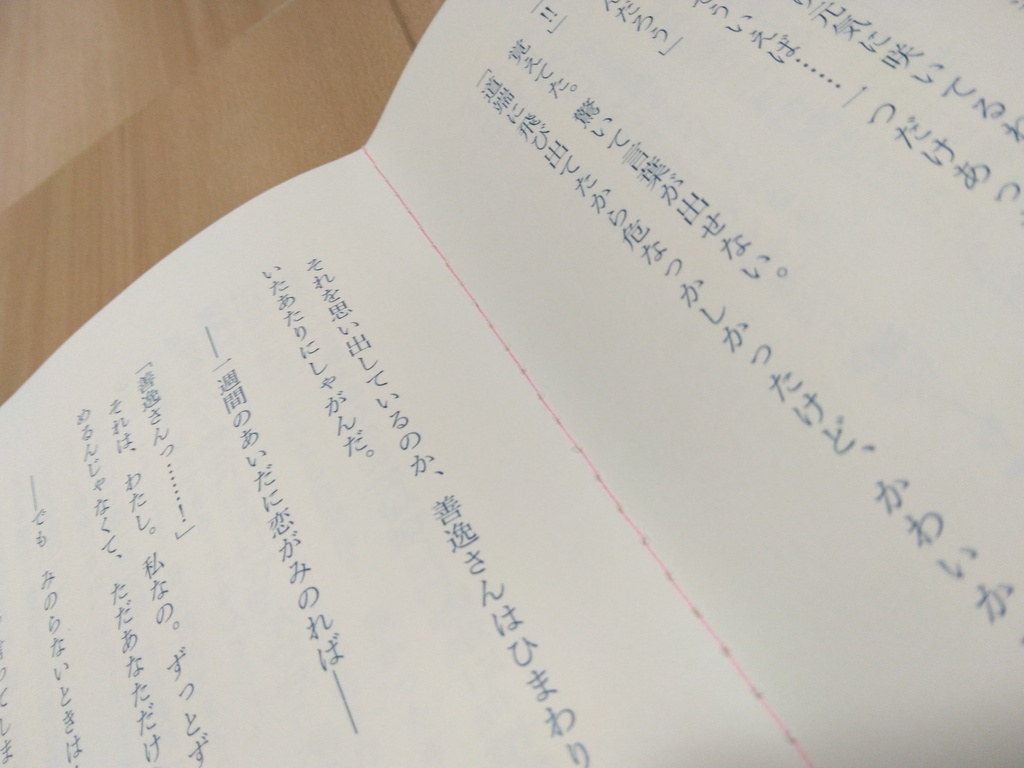 元気に咲いてるわ
ういえば……一つだけあっ
だろう」
「!!」
覚えてた。驚いて言葉が出せない。
「道端に飛び出てたから危なっかしかったけど、かわいか
それを思い出しているのか、善逸さんはひまわり
いたあたりにしゃがんだ。
――一週間のあいだに恋がみのれば――
「善逸さんっ……！」
それは、わたし。私なの。ずっとず
めるんじゃなくて、ただあなただけ
――でも みのらないときは
ってしま